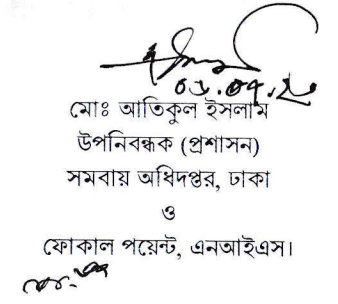 মোঃ আতিকুল ইসলাম
উপনিবন্ধক (প্রশাসন)
সমবায় অধিদপ্তর, ঢাকা
ও
ফোকাল পয়েন্ট, এনআইএস।